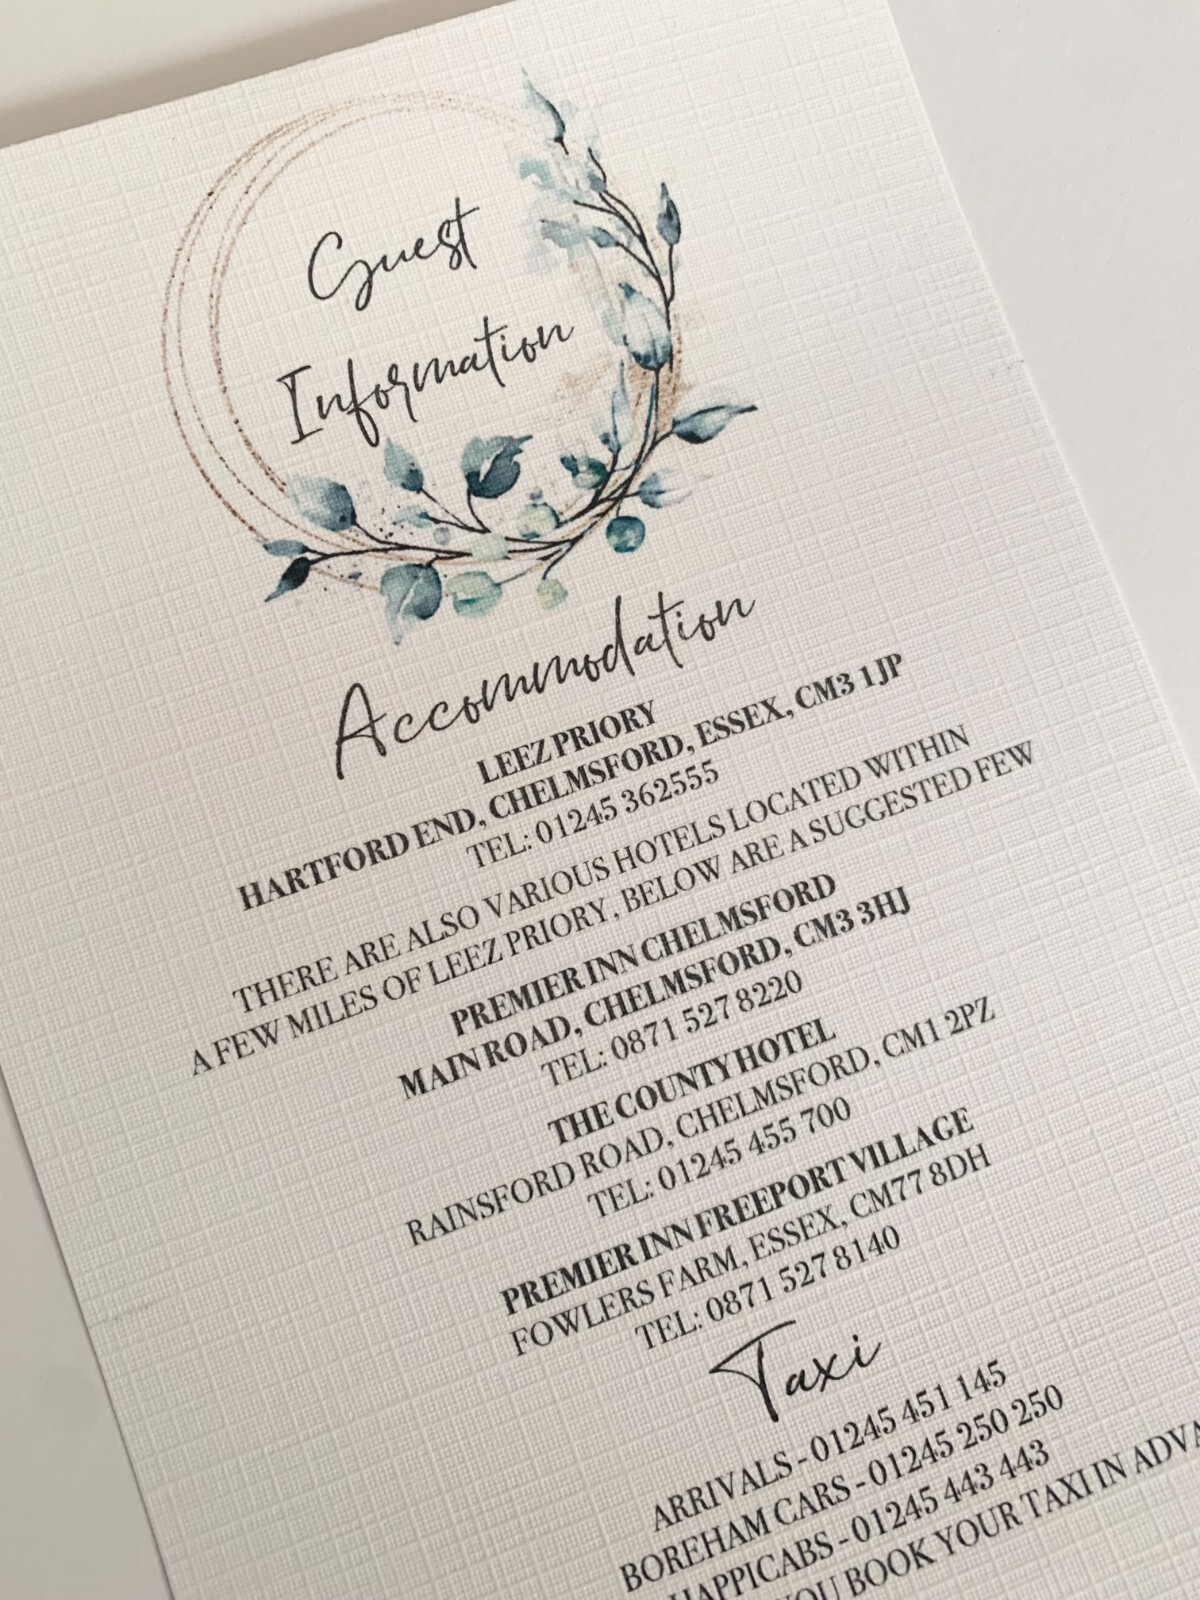 Guest
Information
Accommodation
LEEZ PRIORY
HARTFORD END, CHELMSFORD, ESSEX, CM3 1JP
TEL: 01245 362555
THERE ARE ALSO VARIOUS HOTELS LOCATED WITHIN
A FEW MILES OF LEEZ PRIORY, BELOW ARE A SUGGESTED FEW
PREMIER INN CHELMSFORD
MAIN ROAD, CHELMSFORD, CM3 3HJ
TEL: 0871 527 8220
THE COUNTY HOTEL
RAINSFORD ROAD, CHELMSFORD, CM1 2PZ
TEL: 01245 455 700
PREMIER INN FREEPORT VILLAGE
FOWLERS FARM, ESSEX, CM77 8DH
TEL: 0871 527 8140
Taxi
ARRIVALS - 01245 451 145
BOREHAM CARS - 01245 250 250
HAPPICABS - 01245 443 443
YOU BOOK YOUR TAXI IN